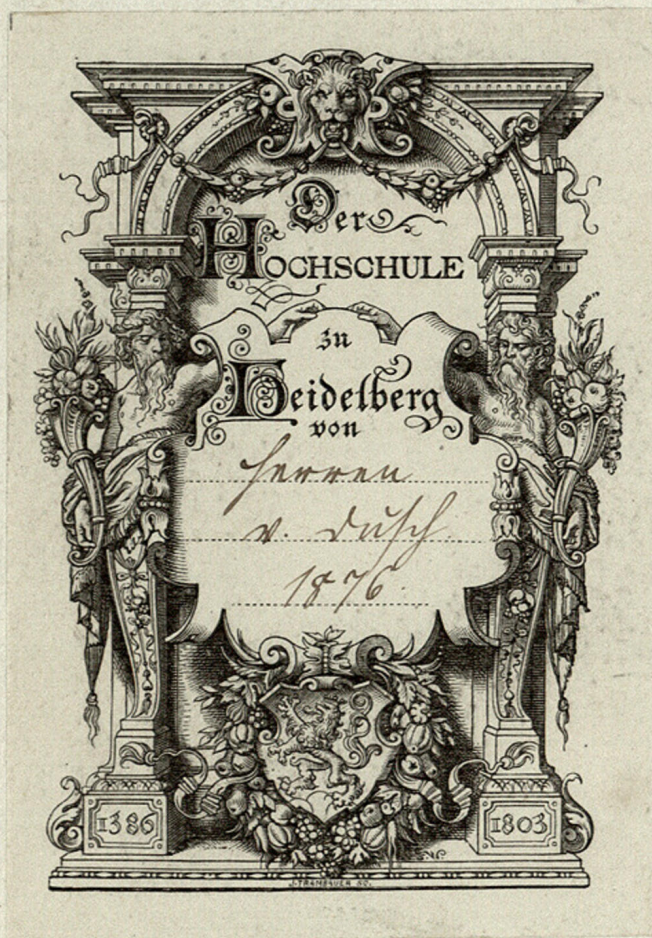 Der
HOCHSCHULE
zu
Heidelberg
von
Herren
v. Dusch
1876.
1386
1803
J. TRAMBAUER SC.